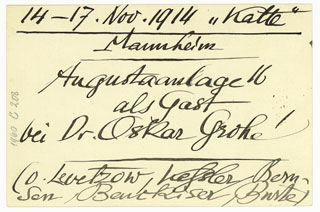 14-17. Nov. 1914 „Katte"
Mannheim
Augustaanlage 16
als Gast
bei Dr. Oskar Grohé!
(v. Levetzow, Kessler, Bern-
sen Benckiser, Burte)
1980 C 208